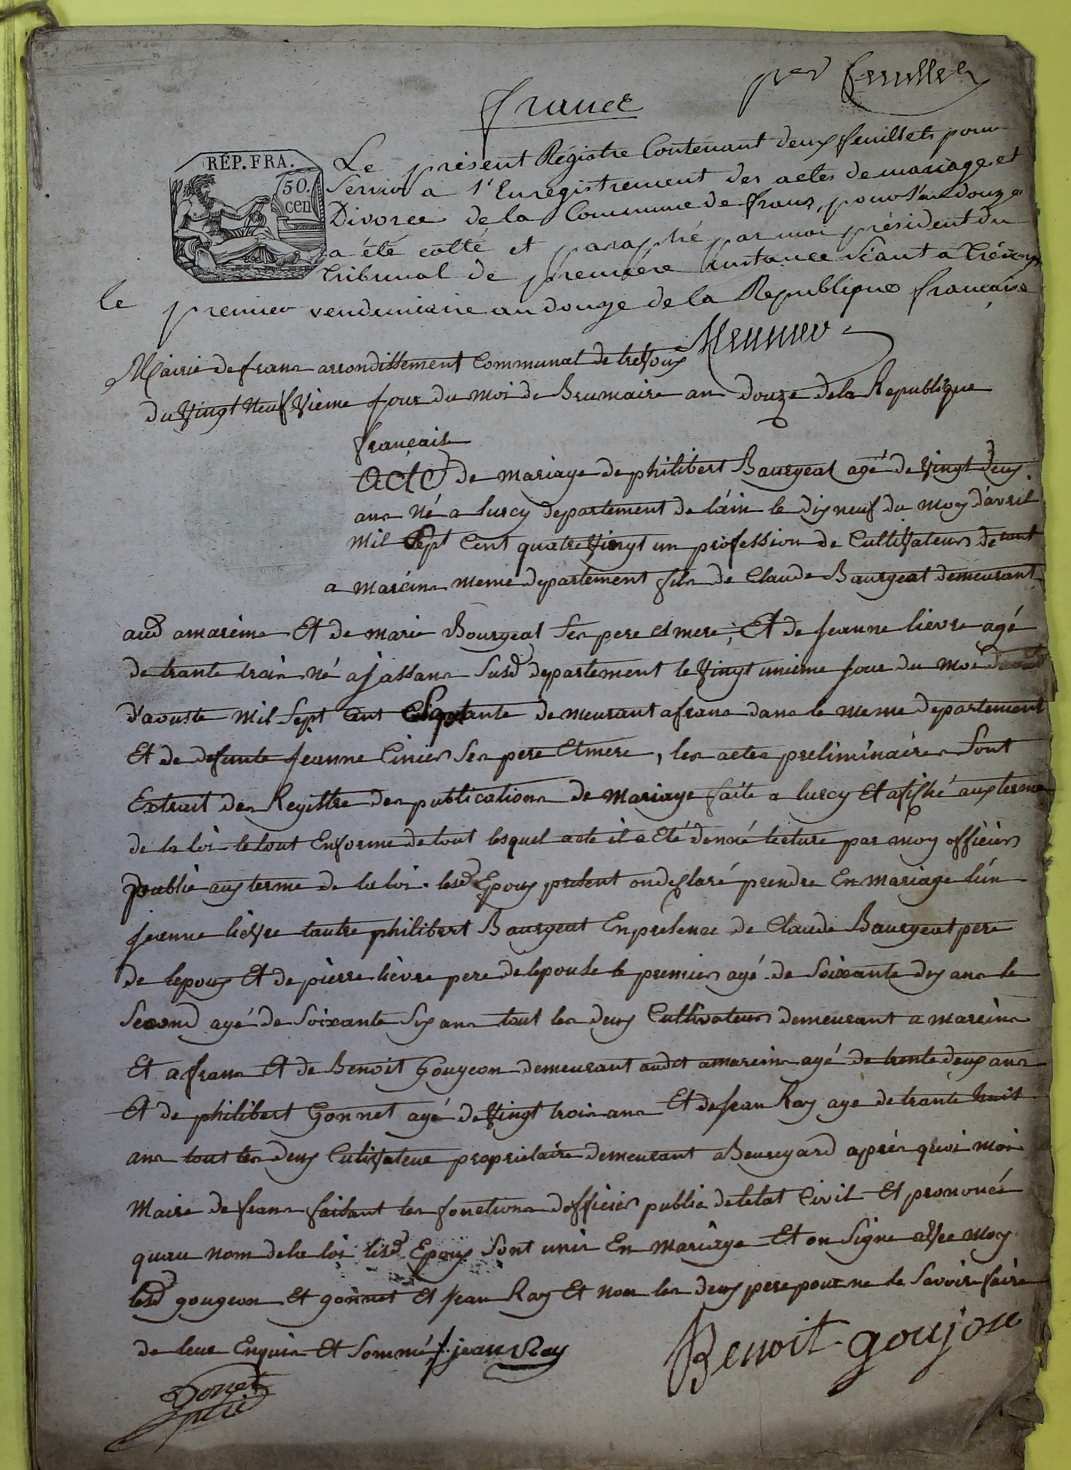 france
REP. FRA.
50. cen
Le présent Registre Contenant deux feuillets pour
Servir a l'Enregistrement des actes de mariage et
Divorce de la Commune de frans, pour l'an douze
a été cotté et paraphé par moi président du
Tribunal de première instance séant a Trévoux
le premier vendemiaire an douze de la Republique française
Mairie de frans arrondissement Communal de trevoux
du Vingt Neuf Vieme jour du moi de Brumaire an douze de la Republique
française
Acte de mariage de philibert Baurgeat agé de Vingt deux
ans Né a lurcy departement de l'ain le dix neuf du moy d'avril
Mil Sept Cent quatre Vingt un profession de Cultivateur
a marcins meme departement fils de Claude Baurgeat demeurant
aud amarcins Et de marie Bourgeat Ses pere et mere; Et de jeanne lievre agé
de trante trois Né a jassans Susd departement le Vingt unieme jour du moi
d'avuste Mil Sept Cent demeurant a frans dans le meme departement
Et de defunte jeanne Cinier Ses pere Et mere, les actes preliminaires Sont
Extrait des Registre des publications de Mariage faite a lurcy Et afiché aux terme
de la loi le tout En forme de tout lesquel acte il a Eté donné lecture par moy officier
publie aux terme de la loi lesd Epoux present on declaré prendre En mariage l'un
jeanne lievre lautre philibert Baurgeat En presence de Claude Baurgeat pere
de lepoux Et de pierre lièvre pere de lepouse le premier agé de Soixante dix ans le
Second agé de Soixante Six ans tout les deux Cultivateur demeurant a marcins
Et a frans Et de Benoit Gougeon demeurant audit amarcins agé de trente deux ans
Et de philibert Gonnet agé de Vingt trois ans Et de jean Ray age de tranté huit
ans tout les deux Cultivateur propriétaire demeurant a Beauregard après quoi moi
Maire de frans faisant les fonctions d'officier public de letat Civil Et prononcé
quau nom de la loi lesd Epoux Sont unis En Mariage Et on Signe avec moy
lesd gougeon Et gonnet Et jean Ray Et non les deux pere pour ne le Savoir faire
de leur Enquis Et Sommé jean Ray
Benoit goujon